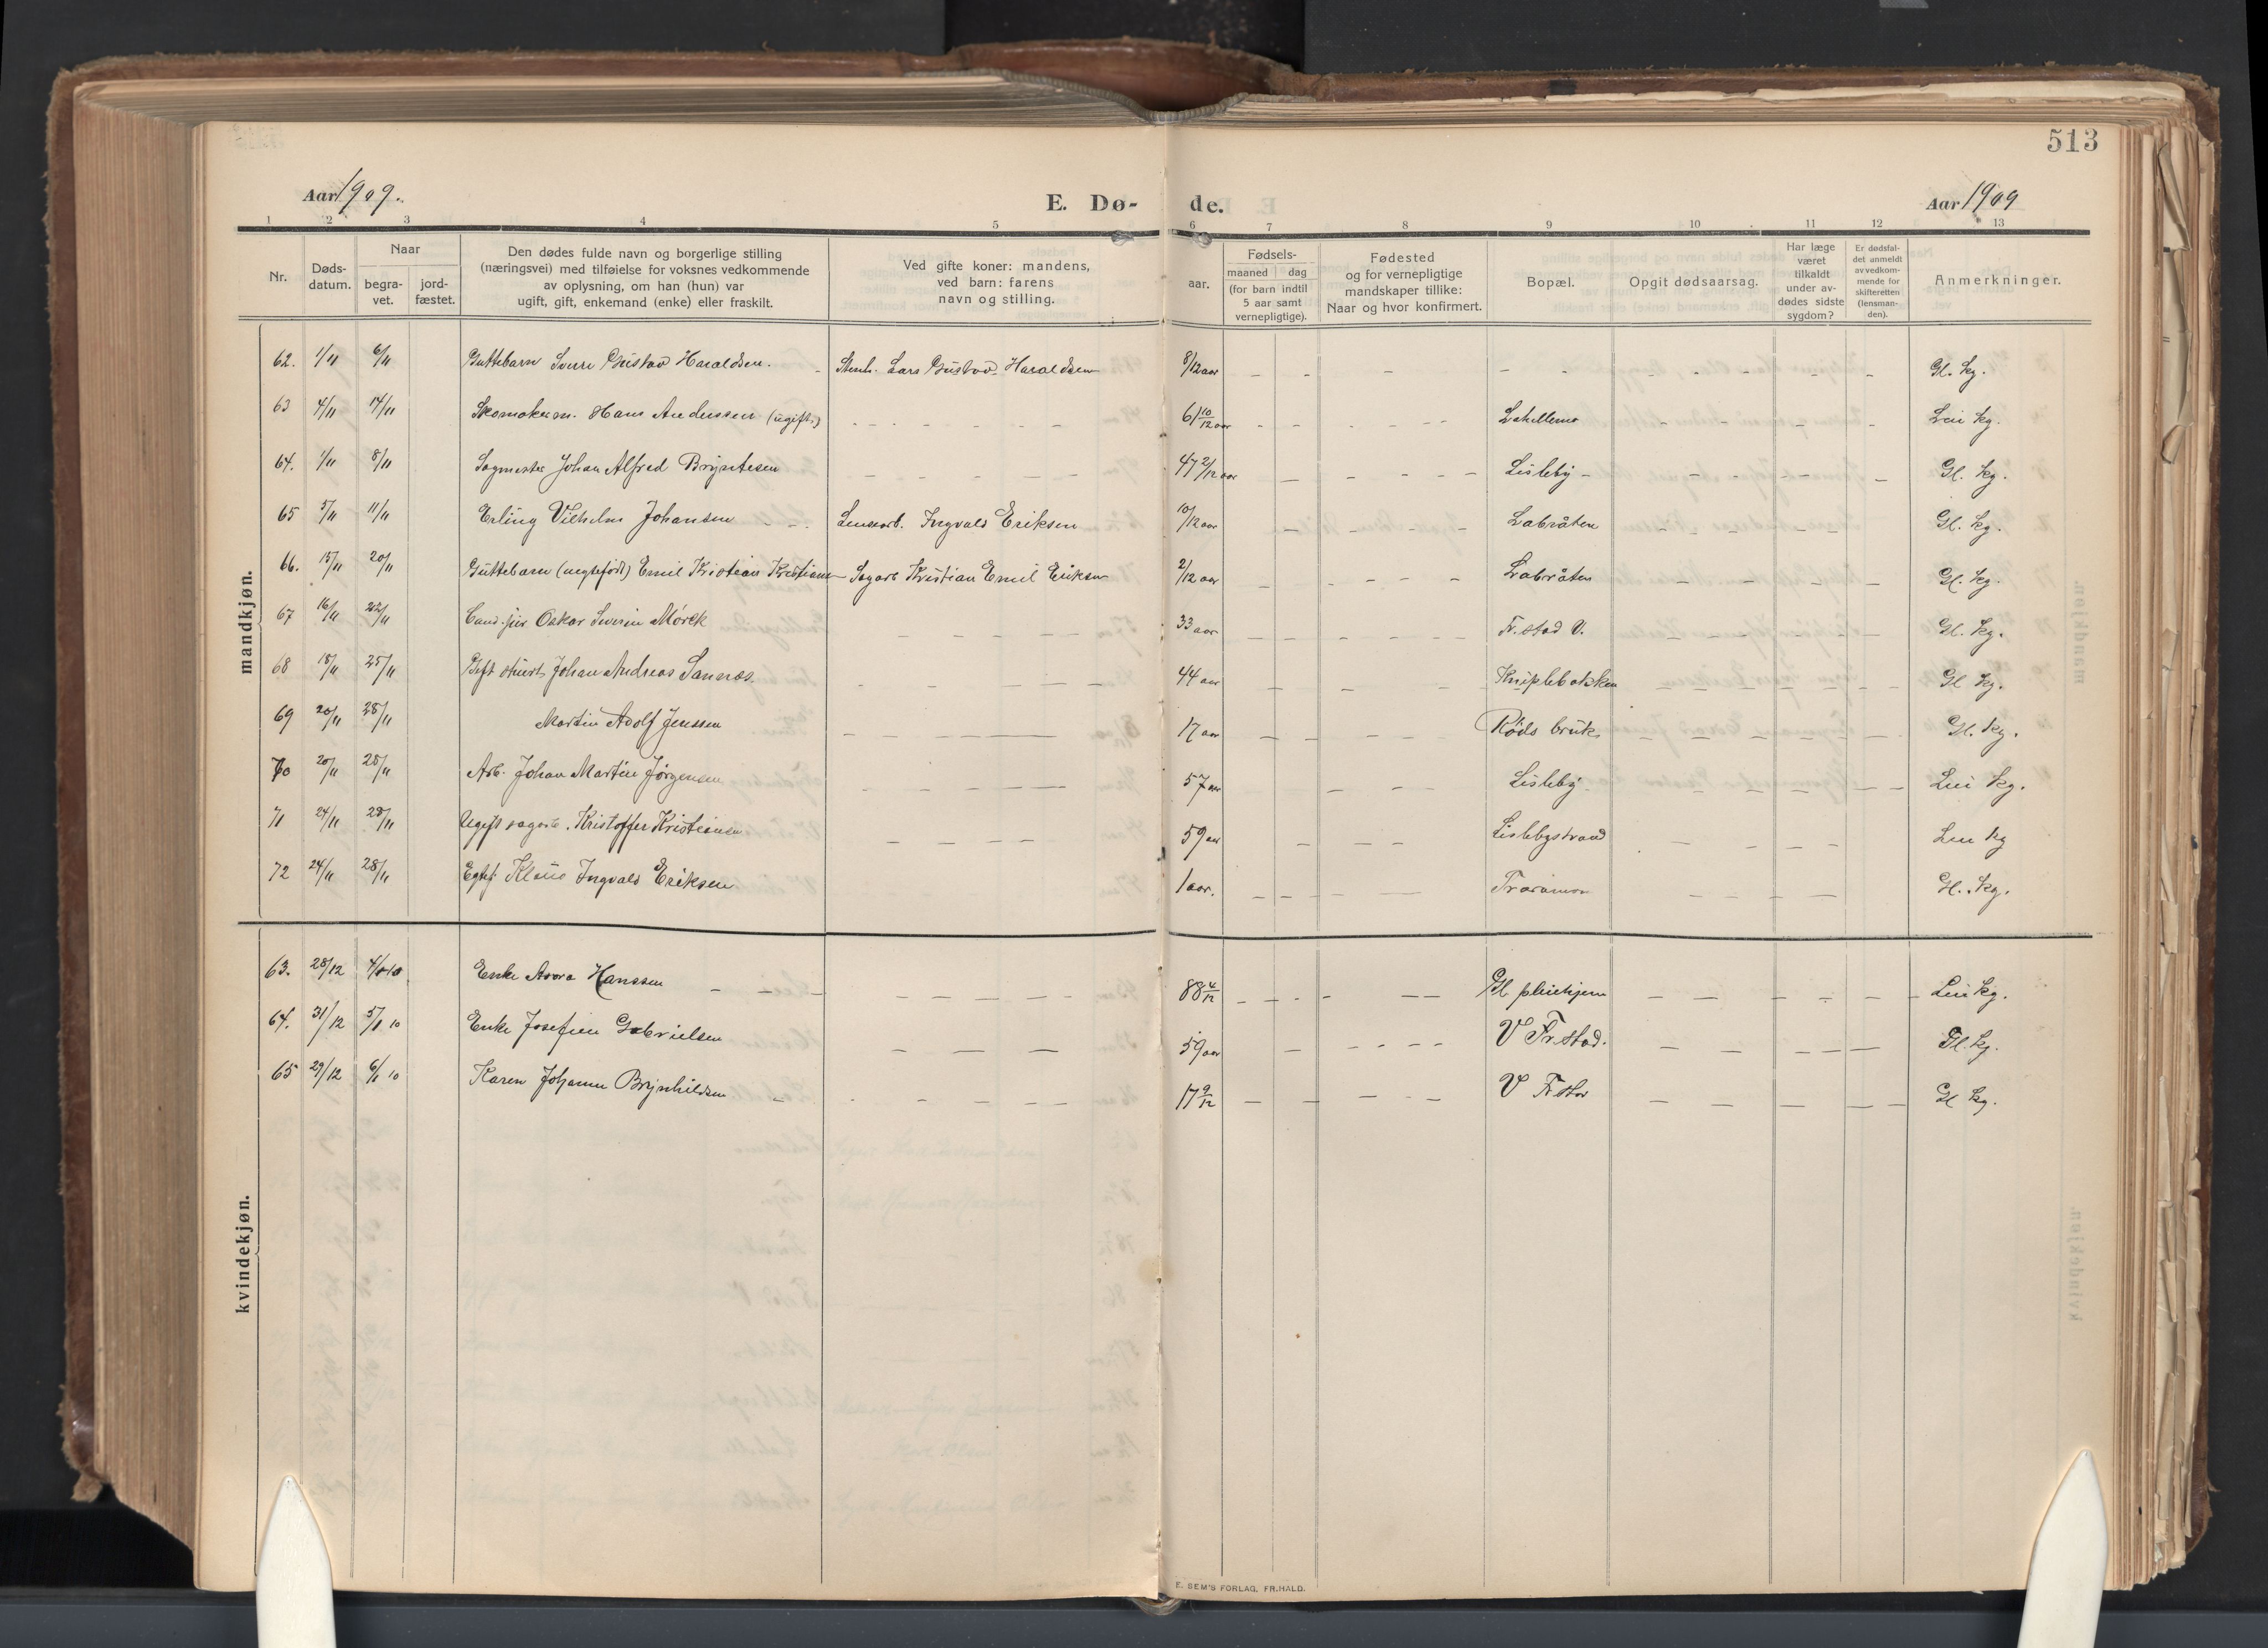 513
Aar 1909.
E. Dø- de.
Aar 1909
1 2 3 4 5 6 7 8 9 10 11 12 13
Nr.
Døds-
datum.
Naar
begra-
vet.
jord-
fæstet.
Den dødes fulde navn og borgerlige stilling
(næringsvei) med tilføielse for voksnes vedkommende
av oplysning, om han (hun) var
ugift, gift, enkemand (enke) eller fraskilt.
Ved gifte koner: mandens,
ved barn: farens
navn og stilling.
aar.
Fødsels-
maaned dag
(for barn indtil
5 aar samt
vernepligtige).
Fødested
og for vernepligtige
mandskaper tillike:
Naar og hvor konfirmert.
Bopæl.
Opgit dødsaarsag.
Har læge
været
tilkaldt
under av-
dødes sidste
sygdom?
Er dødsfal-
det anmeldt
av vedkom-
mende for
skifteretten
(lensman-
den).
Anmerkninger.
mandkjøn.
62. 1/11 6/11 Guttebarn Sverre Gustav Haraldsen. Stenh. Lars Gustav Haraldsen 8/12 aar Gl. kg.
63 4/11 14/11 Skomakerm. Hans Anderssen (ugift) 61 10/12 aar Lei kg.
64. 1/11 8/11 Sagmester Johan Alfred Bryntesen 47 2/12 aar Lisleby Gl. kg.
65 5/11 11/11 Erling Vilhelm Johansen Lensearb. Ingvald Eriksen 10/12 aar Labråten Gl. kg.
66. 15/11 20/11 Guttebarn (uegtefødt) Emil Kristian Kristiansen Sagarb Kristian Emil Eriksen 2/12 aar Labråten Gl. kg.
67 16/11 22/11 Cand. jur. Oskar Severin Mørck 33 aar Fr.stad V. Gl. kg.
68 18/11 25/11 Gift stuert Johan Andreas Sannæs. 44 aar Kniplebakken Gl kg.
69 20/11 28/11 Martin Adolf Jenssen 17 aar Røds bruk Gl. kg.
70 20/11 25/11 Arb. Johan Martin Jørgensen 57 aar Lisleby Lei kg.
71 24/11 28/11 Ugift sagarb. Kristoffer Kristiansen 59 aar Lislebystrand Lei kg
72 24/11 28/11 Egtef Klaus Ingvald Eriksen 1 aar. Traramoen Gl. kg.
kvindekjøn.
63. 28/12 4/1 10 Enke Hanssen 88 4/12 Gl pleiehjem Lei kg.
64. 31/12 5/1 10 Enke Josefine Gabrielsen 59 aar V Fr.stad. Gl. kg.
65 29/12 6/1 10 Karen Johanne Brynhildsen 17 9/12 V Fr stad Gl kg.
E. SEM'S FORLAG, FR.HALD.